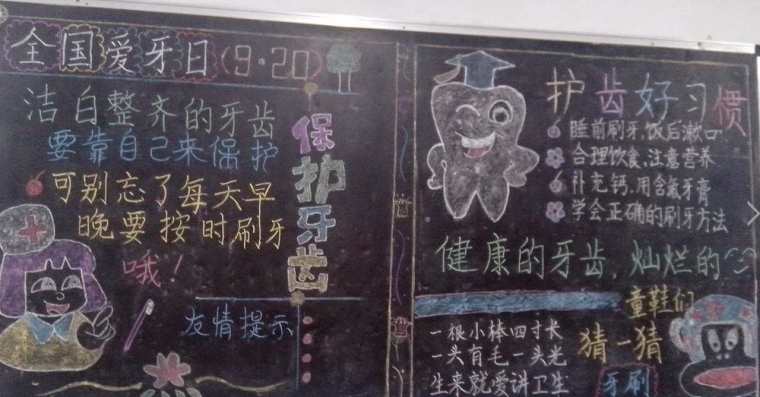 全国爱牙日(9·20)
洁白整齐的牙齿
要靠自己来保护
可别忘了每天早
晚要按时刷牙
哦!
保护牙齿
友情提示
护齿好习惯
睡前刷牙,饭后漱口
合理饮食,注意营养
补充钙,用含氟牙膏
学会正确的刷牙方法
健康的牙齿,灿烂的
童鞋们
猜一猜
一根小棒四寸长
一头有毛一头光
生来就爱讲卫生
牙刷